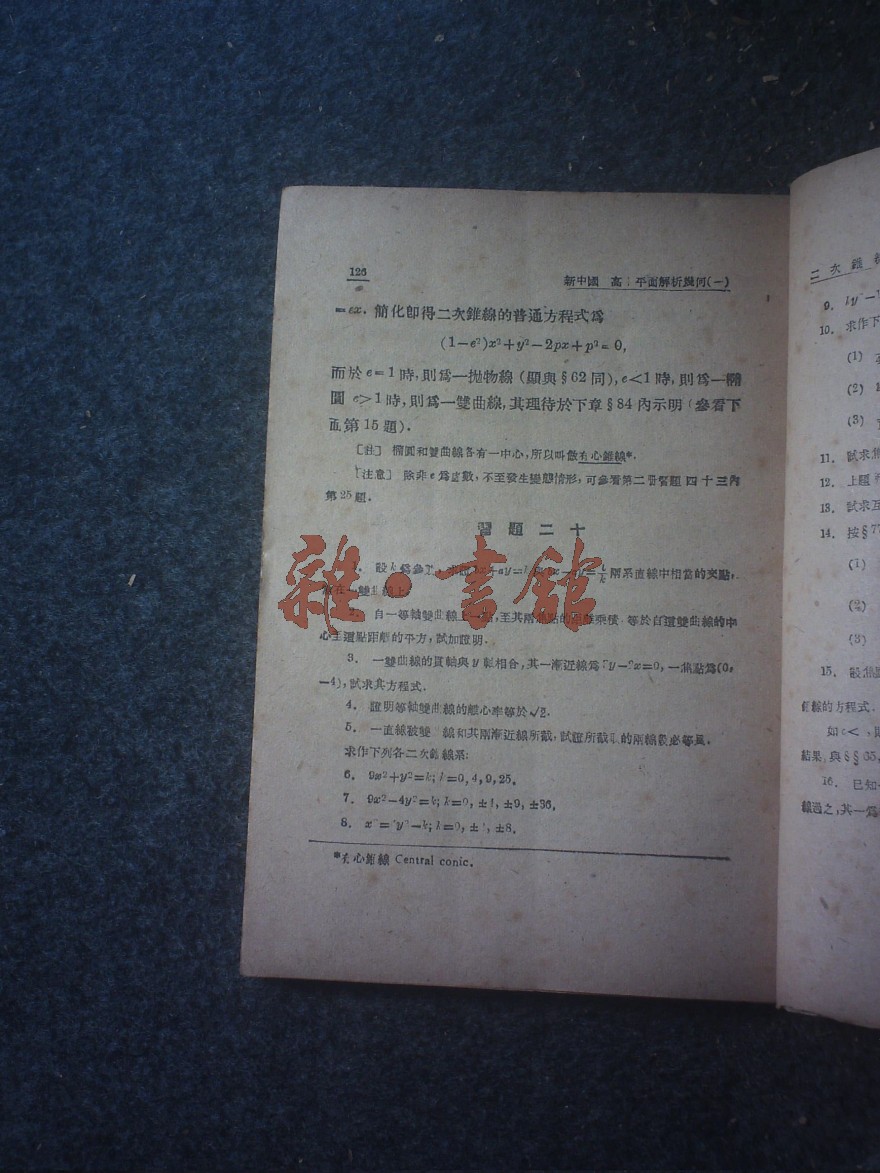 126
新中國 高 平面解析幾何(一)
=ex, 簡化卽得二次錐線的普通方程式爲
(1-e²)x²+y²-2px+p²=0,
而於 e=1 時,則爲一拋物線 (顯與 §62 同), e<1 時, 則爲一橢
圓 e>1 時,則爲一雙曲線, 其理待於下章 §84 內示明 (參看下
面第 15 題).
[註] 橢圓和雙曲線各有一中心,所以叫做有心錐線*.
[注意] 除非 e 爲虛數, 不至發生變態情形, 可參看第二冊習題四十三內
第25題.
習題二十
設 k 爲參 兩系直線中相當的交點,
雙曲線上
2. 自一等軸雙曲線上一點,至其兩 點的 乘積 等於自這雙曲線的中
心至這點距離的平方, 試加證明.
3. 一雙曲線的貫軸與 y 軸相合, 其一漸近線爲 y-2x=0, 一焦點爲(0,
-4), 試求其方程式.
4. 證明等軸雙曲線的離心率等於√2.
5. 一直線被雙 線和其兩漸近線所截, 試證所截 的兩線段必等長.
求作下列各二次錐線系:
6. 9x²+y²=k; k=0, 4, 9, 25.
7. 9x²-4y²=k; k=0, ±4, ±9, ±36,
8. k=0, ±8.
*有心錐線 Central conic.
二次錐線
9.
10. 求作下
(1)
(2)
(3)
11. 試求焦
12. 上題
13. 試求互
14. 按§77
(1)
(2)
(3)
15. 設焦
錐線的方程式.
如 e<
結果, 與 §§ 65,
16. 已知
線過之, 其一爲
雜·書館